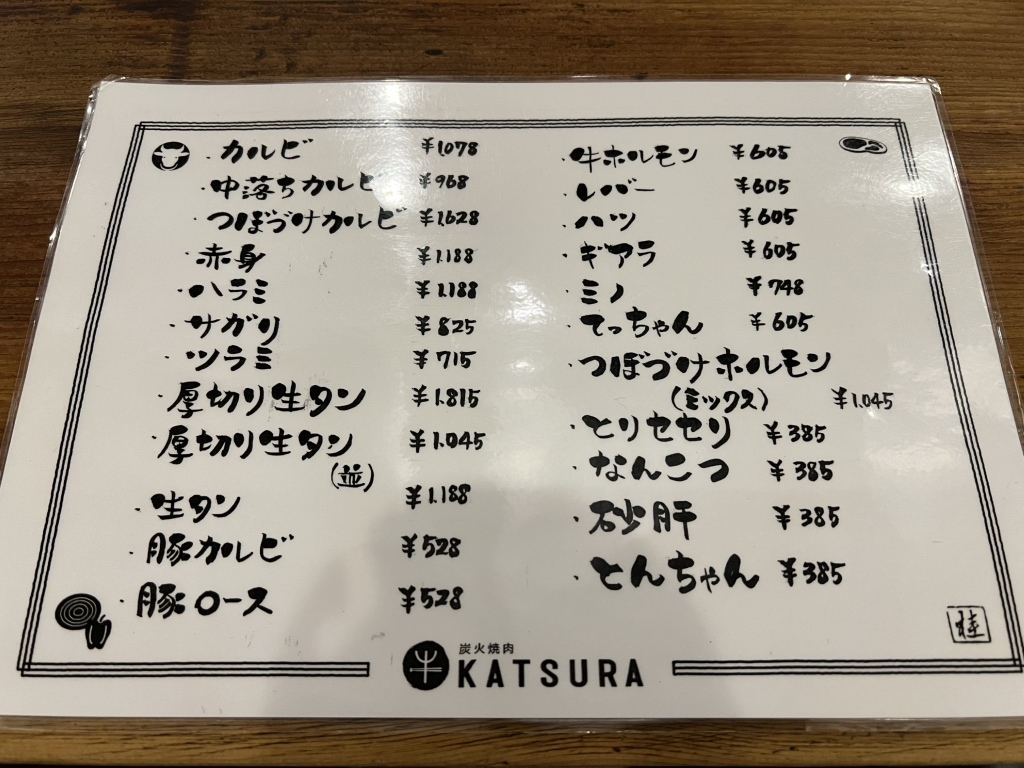 ・カルビ ¥1,078
・中落ちカルビ ¥968
・つぼづけカルビ ¥1,628
・赤身 ¥1,188
・ハラミ ¥1,188
・サガリ ¥825
・ツラミ ¥715
・厚切り生タン ¥1,815
・厚切り生タン ¥1,045
(並)
・生タン ¥1,188
・豚カルビ ¥528
・豚ロース ¥528
・牛ホルモン ¥605
・レバー ¥605
・ハツ ¥605
・ギアラ ¥605
・ミノ ¥748
・てっちゃん ¥605
・つぼづけホルモン
(ミックス) ¥1,045
・とりセセリ ¥385
・なんこつ ¥385
・砂肝 ¥385
・とんちゃん ¥385
桂
炭火焼肉
KATSURA